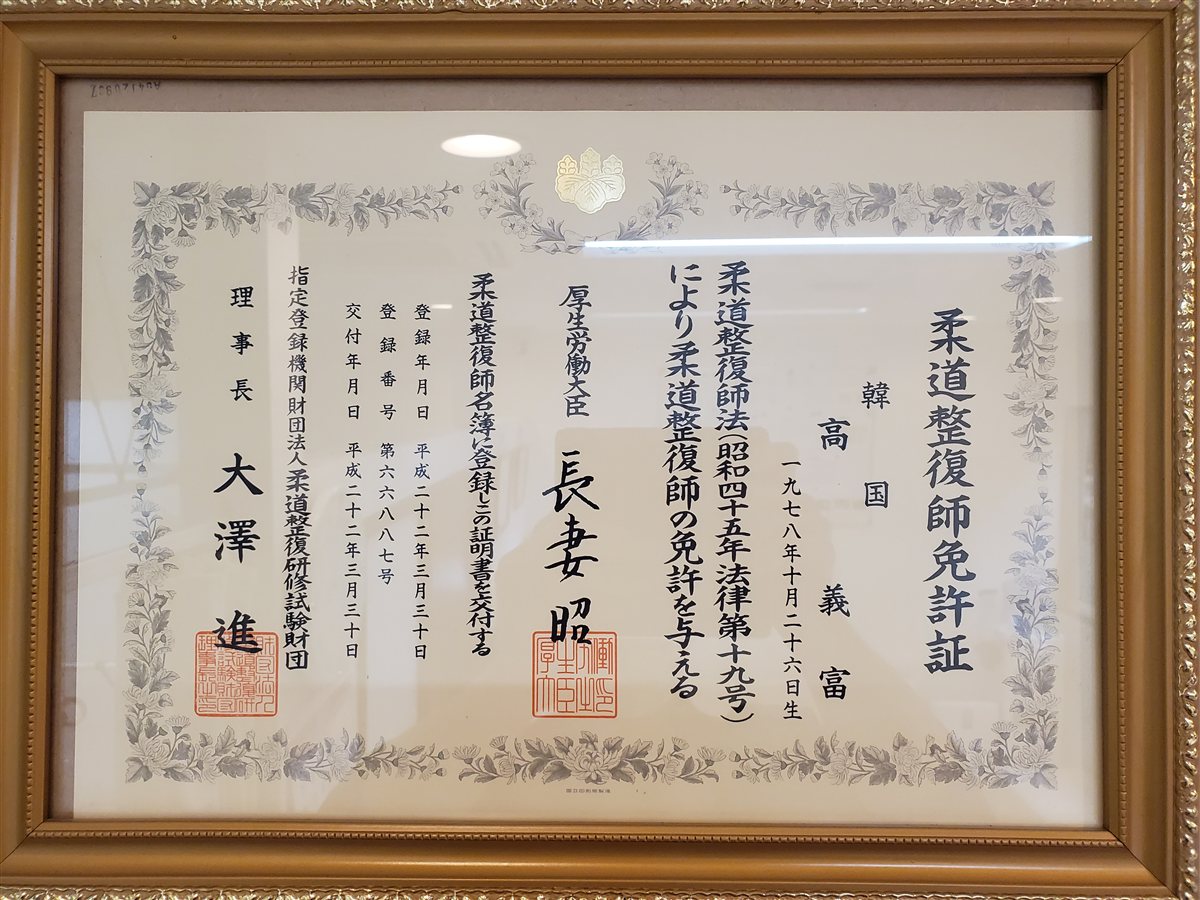 柔道整復師免許証
韓国
高義富
一九七八年十月二十六日生
柔道整復師法(昭和四十五年法律第十九号)
により柔道整復師の免許を与える
厚生労働大臣 長妻昭
柔道整復師名簿に登録しこの証明書を交付する
登録年月日 平成二十二年三月三十日
登録番号 第六六八八七号
交付年月日 平成二十二年三月三十日
指定登録機関財団法人柔道整復研修試験財団
理事長 大澤進
国立印刷局製造